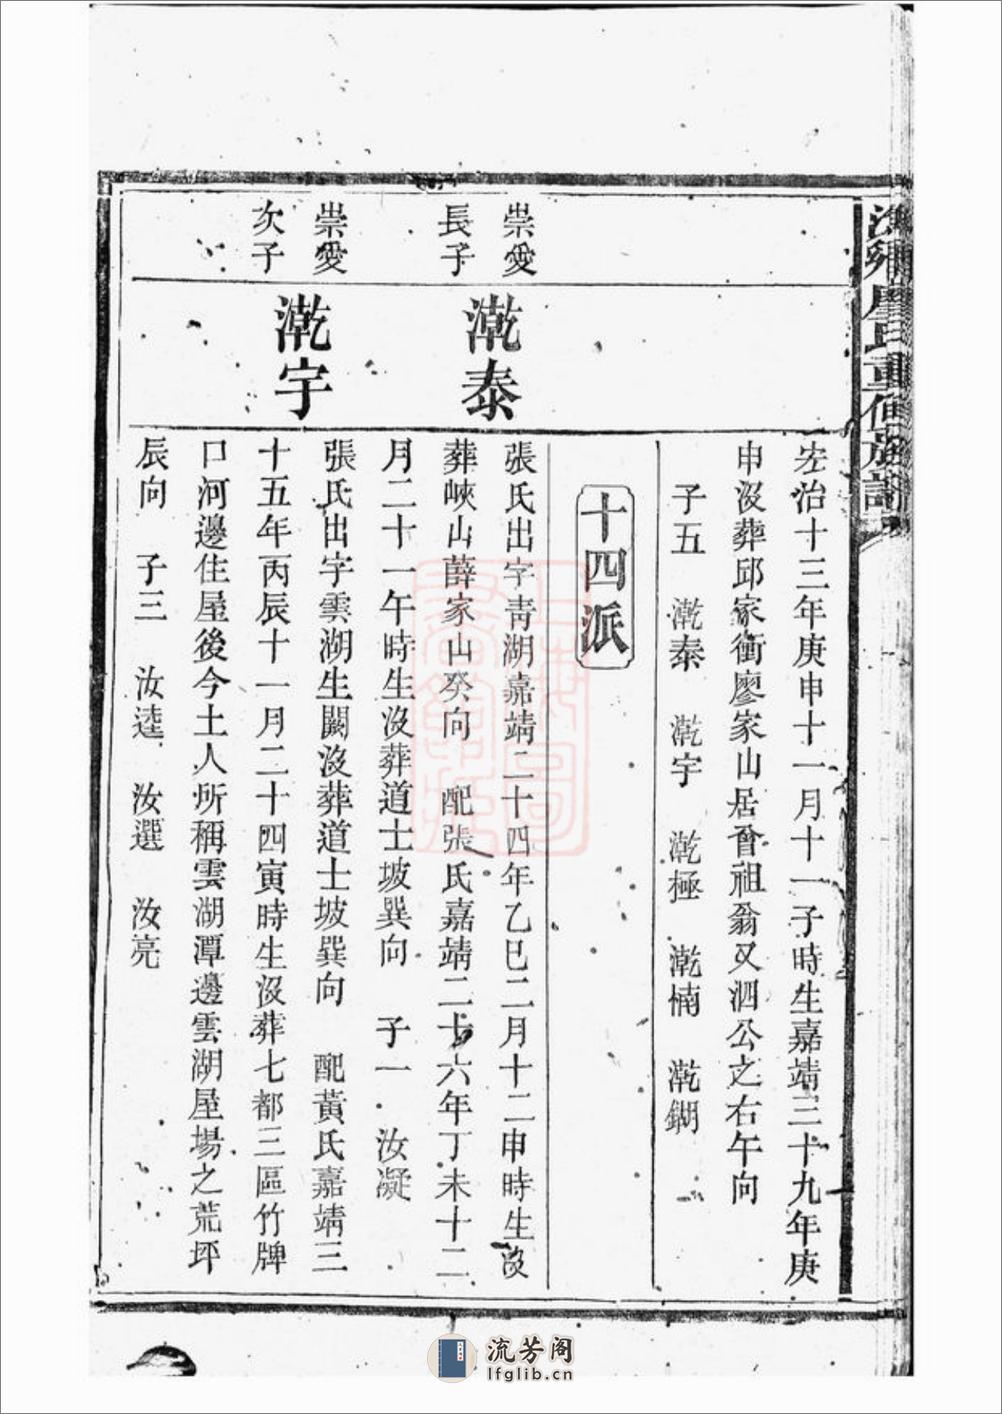 宏治十三年庚申十一月十一子時生嘉靖三十九年庚
申沒葬邱家衝廖家山居曾祖翁又泗公之右午向
子五 漧泰 漧宇 漧極 漧楠 漧鎙
十四派
崇愛
長子
漧泰
張氏出字青湖嘉靖二十四年乙巳二月十二申時生沒
葬峽山薛家山癸向 配張氏嘉靖二十六年丁未十二
月二十一午時生沒葬道士坡巽向 子一 汝凝
崇愛
次子
漧宇
張氏出字雲湖生闕沒葬道士坡巽向 配黃氏嘉靖三
十五年丙辰十一月二十四寅時生沒葬七都三區竹牌
口河邊住屋後今土人所稱雲湖潭邊雲湖屋場之荒坪
辰向 子三 汝逵 汝選 汝亮
流芳阁
lfglib.cn